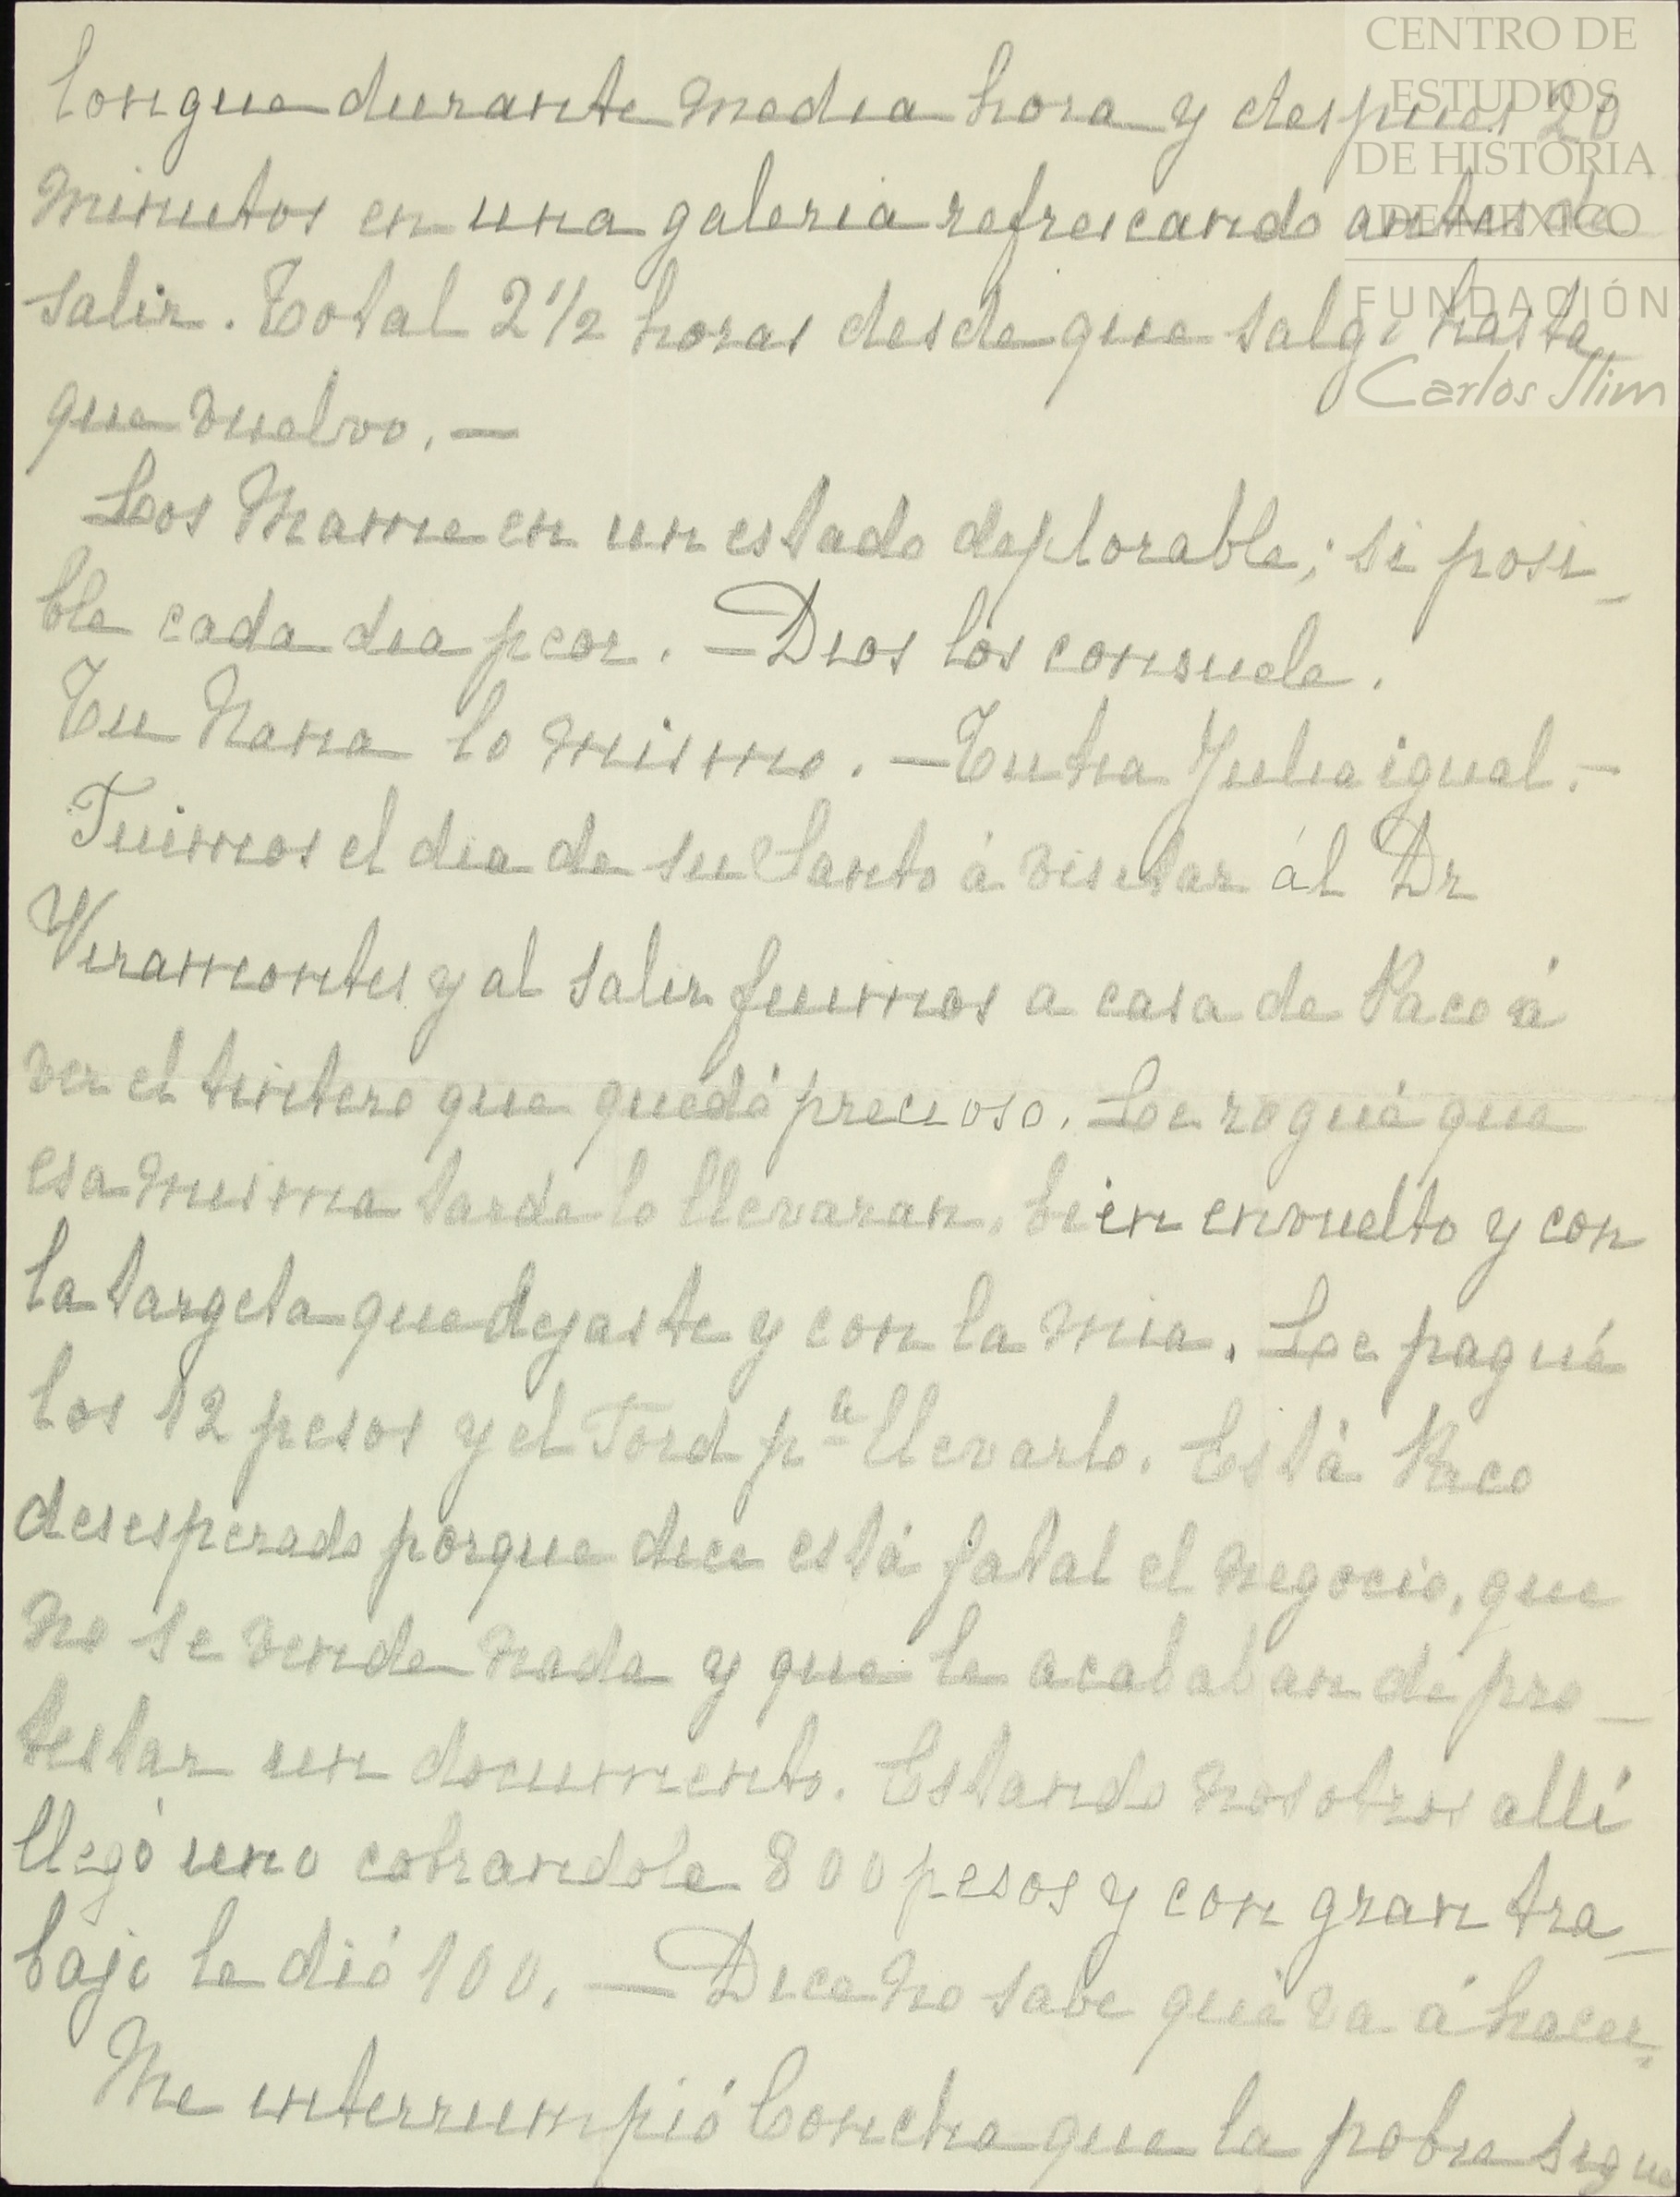 CENTRO DE
ESTUDIOS
DE HISTORIA
DE MEXICO
FUNDACIÓN
Carlos Slim
longue durante media hora y despues 20
minutos en una galeria refrescando antes de
salir. Total 2 1/2 horas desde que salgo hasta
que vuelvo. —
Los Mame en un estado deplorable; si posi_
ble cada dia peor. — Dios los consuele.
Tu Nana lo mismo. — Tu tia Julia igual. —
Fuimos el dia de su Santo á visitar ál Dr
Viramontes y al salir fuimos a casa de Paco á
ver el tintero que quedó precioso. Le rogué que
esa misma tarde lo llevaran, bien envuelto y con
la targeta que dejaste y con la mia. Le pagué
los 12 pesos y el Ford pª llevarlo. Está Paco
desesperado porque dice está fatal el negocio, que
no se vende nada y que le acababan de pro_
testar un documento. Estando nosotros allí
llegó uno cobrandole 800 pesos y con gran tra_
bajo le dió 100. — Dice no sabe qué va á hacer.
Me interrumpió Concha que la pobre sigue